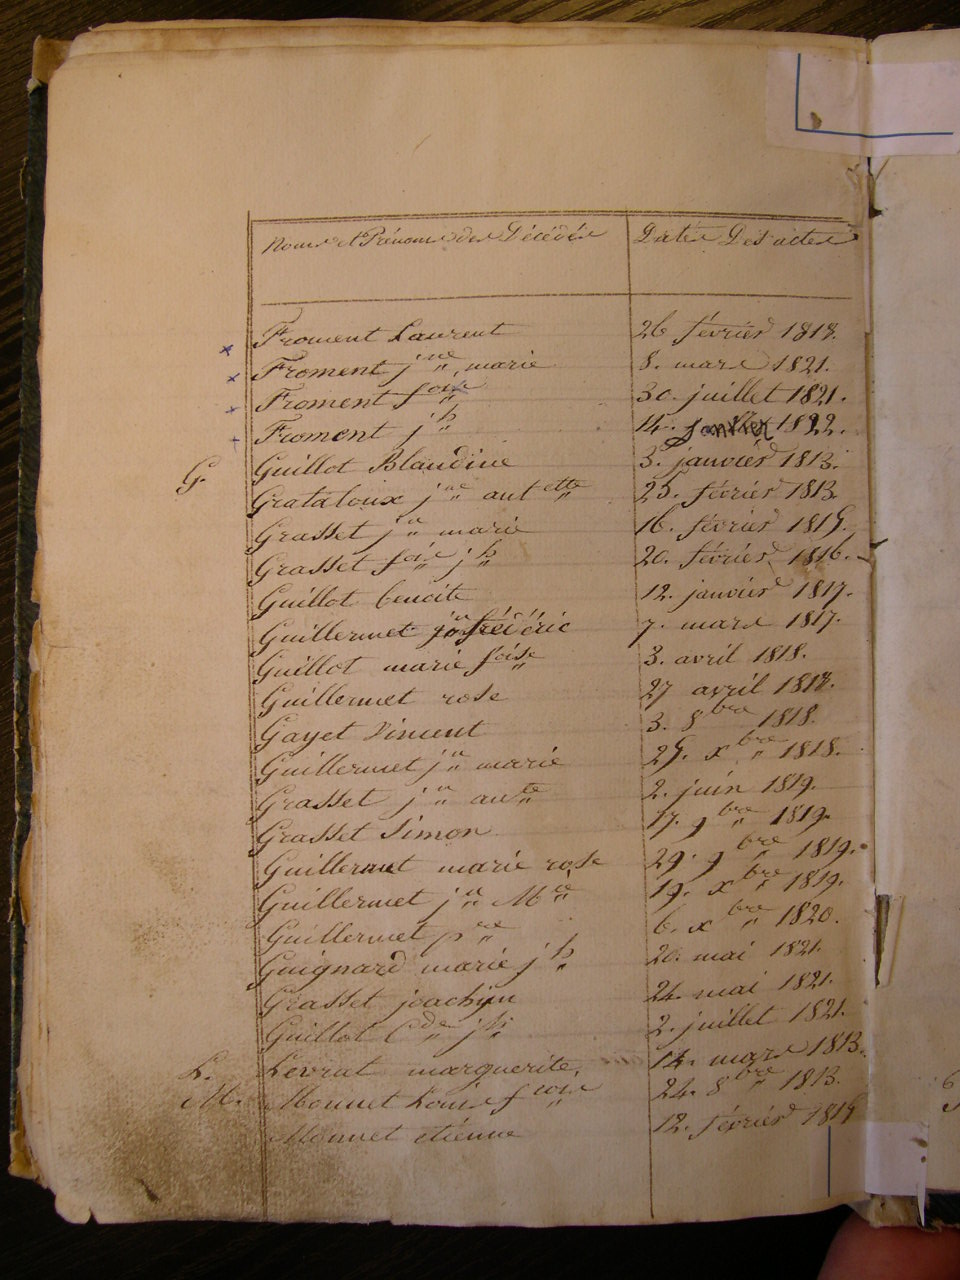 Noms et Prénoms des Décédés Dates Des actes
Froment Laurent 26 février 1818.
Froment j ne marie 8. mars 1821.
Froment f ois 30. juillet 1821.
Froment j h 14. janvier 1822.
G. Guillot Blandine 3. janvier 1813.
Grataloux j ne ant ette 25. février 1813.
Grasset j n marie 16. février 1815.
Grasset fois j h 20. février 1816.
Guillot benoite 12. janvier 1817.
Guillermet frédéric 7. mars 1817.
Guillot marie foise 3. avril 1818.
Guillermet rose 27 avril 1818.
Gayet Vincent 3. 8 bre 1818.
Guillermet j n marie 25. x bre 1818.
Grasset j n ante 2. juin 1819.
Grasset Simon 17. 9 bre 1819.
Guillermet marie rose 29. 9 bre 1819.
Guillermet j n M ie 19. x bre 1819.
Guillermet p re 6. x bre 1820.
Guignard marie j h 20. mai 1821.
Grasset joachim 24. mai 1821.
Guillot C de j h 2. juillet 1821.
L. Levrat marguerite. 14. mars 1813.
M. Monnet Louis f ois 24. 8 bre 1813.
Monnet etienne 12. février 1815